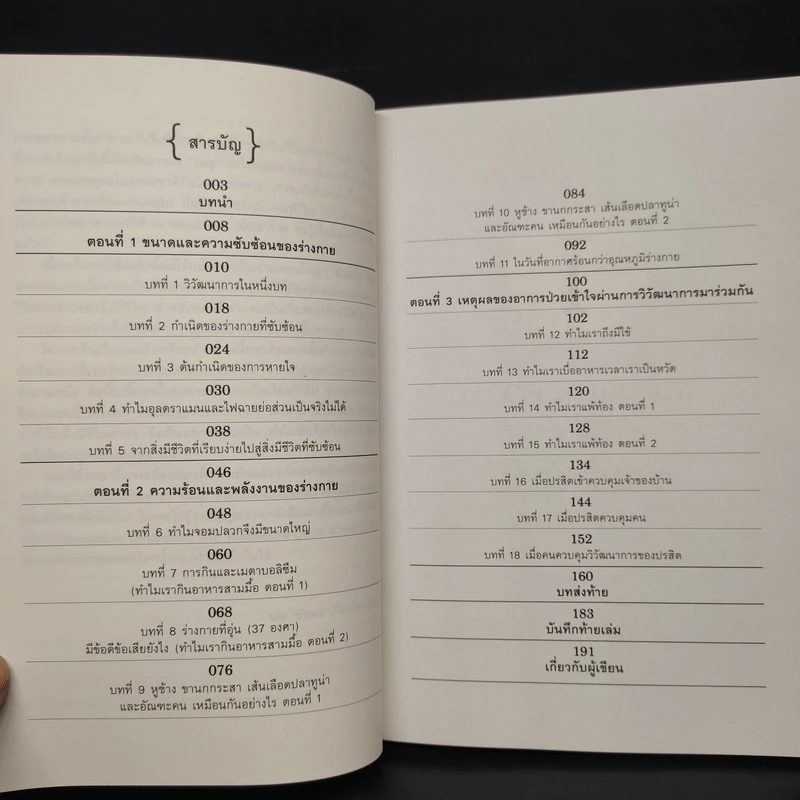 { สารบัญ }
003
บทนำ
008
ตอนที่ 1 ขนาดและความซับซ้อนของร่างกาย
010
บทที่ 1 วิวัฒนาการในหนึ่งบท
018
บทที่ 2 กำเนิดของร่างกายที่ซับซ้อน
024
บทที่ 3 ต้นกำเนิดของการหายใจ
030
บทที่ 4 ทำไมอุลตราแมนและไฟฉายย่อส่วนเป็นจริงไม่ได้
038
บทที่ 5 จากสิ่งมีชีวิตที่เรียบง่ายไปสู่สิ่งมีชีวิตที่ซับซ้อน
046
ตอนที่ 2 ความร้อนและพลังงานของร่างกาย
048
บทที่ 6 ทำไมจอมปลวกจึงมีขนาดใหญ่
060
บทที่ 7 การกินและเมตาบอลิซึม
(ทำไมเรากินอาหารสามมื้อ ตอนที่ 1)
068
บทที่ 8 ร่างกายที่อุ่น (37 องศา)
มีข้อดีข้อเสียยังไง (ทำไมเรากินอาหารสามมื้อ ตอนที่ 2)
076
บทที่ 9 หูช้าง ขานกกระสา เส้นเลือดปลาทูน่า
และอัณฑะคน เหมือนกันอย่างไร ตอนที่ 1
084
บทที่ 10 หูช้าง ขานกกระสา เส้นเลือดปลาทูน่า
และอัณฑะคน เหมือนกันอย่างไร ตอนที่ 2
092
บทที่ 11 ในวันที่อากาศร้อนกว่าอุณหภูมิร่างกาย
100
ตอนที่ 3 เหตุผลของอาการป่วยเข้าใจผ่านการวิวัฒนาการมาร่วมกัน
102
บทที่ 12 ทำไมเราถึงมีไข้
112
บทที่ 13 ทำไมเราเบื่ออาหารเวลาเราเป็นหวัด
120
บทที่ 14 ทำไมเราแพ้ท้อง ตอนที่ 1
128
บทที่ 15 ทำไมเราแพ้ท้อง ตอนที่ 2
134
บทที่ 16 เมื่อปรสิตเข้าควบคุมเจ้าของบ้าน
144
บทที่ 17 เมื่อปรสิตควบคุมคน
152
บทที่ 18 เมื่อคนควบคุมวิวัฒนาการของปรสิต
160
บทส่งท้าย
183
บันทึกท้ายเล่ม
191
เกี่ยวกับผู้เขียน